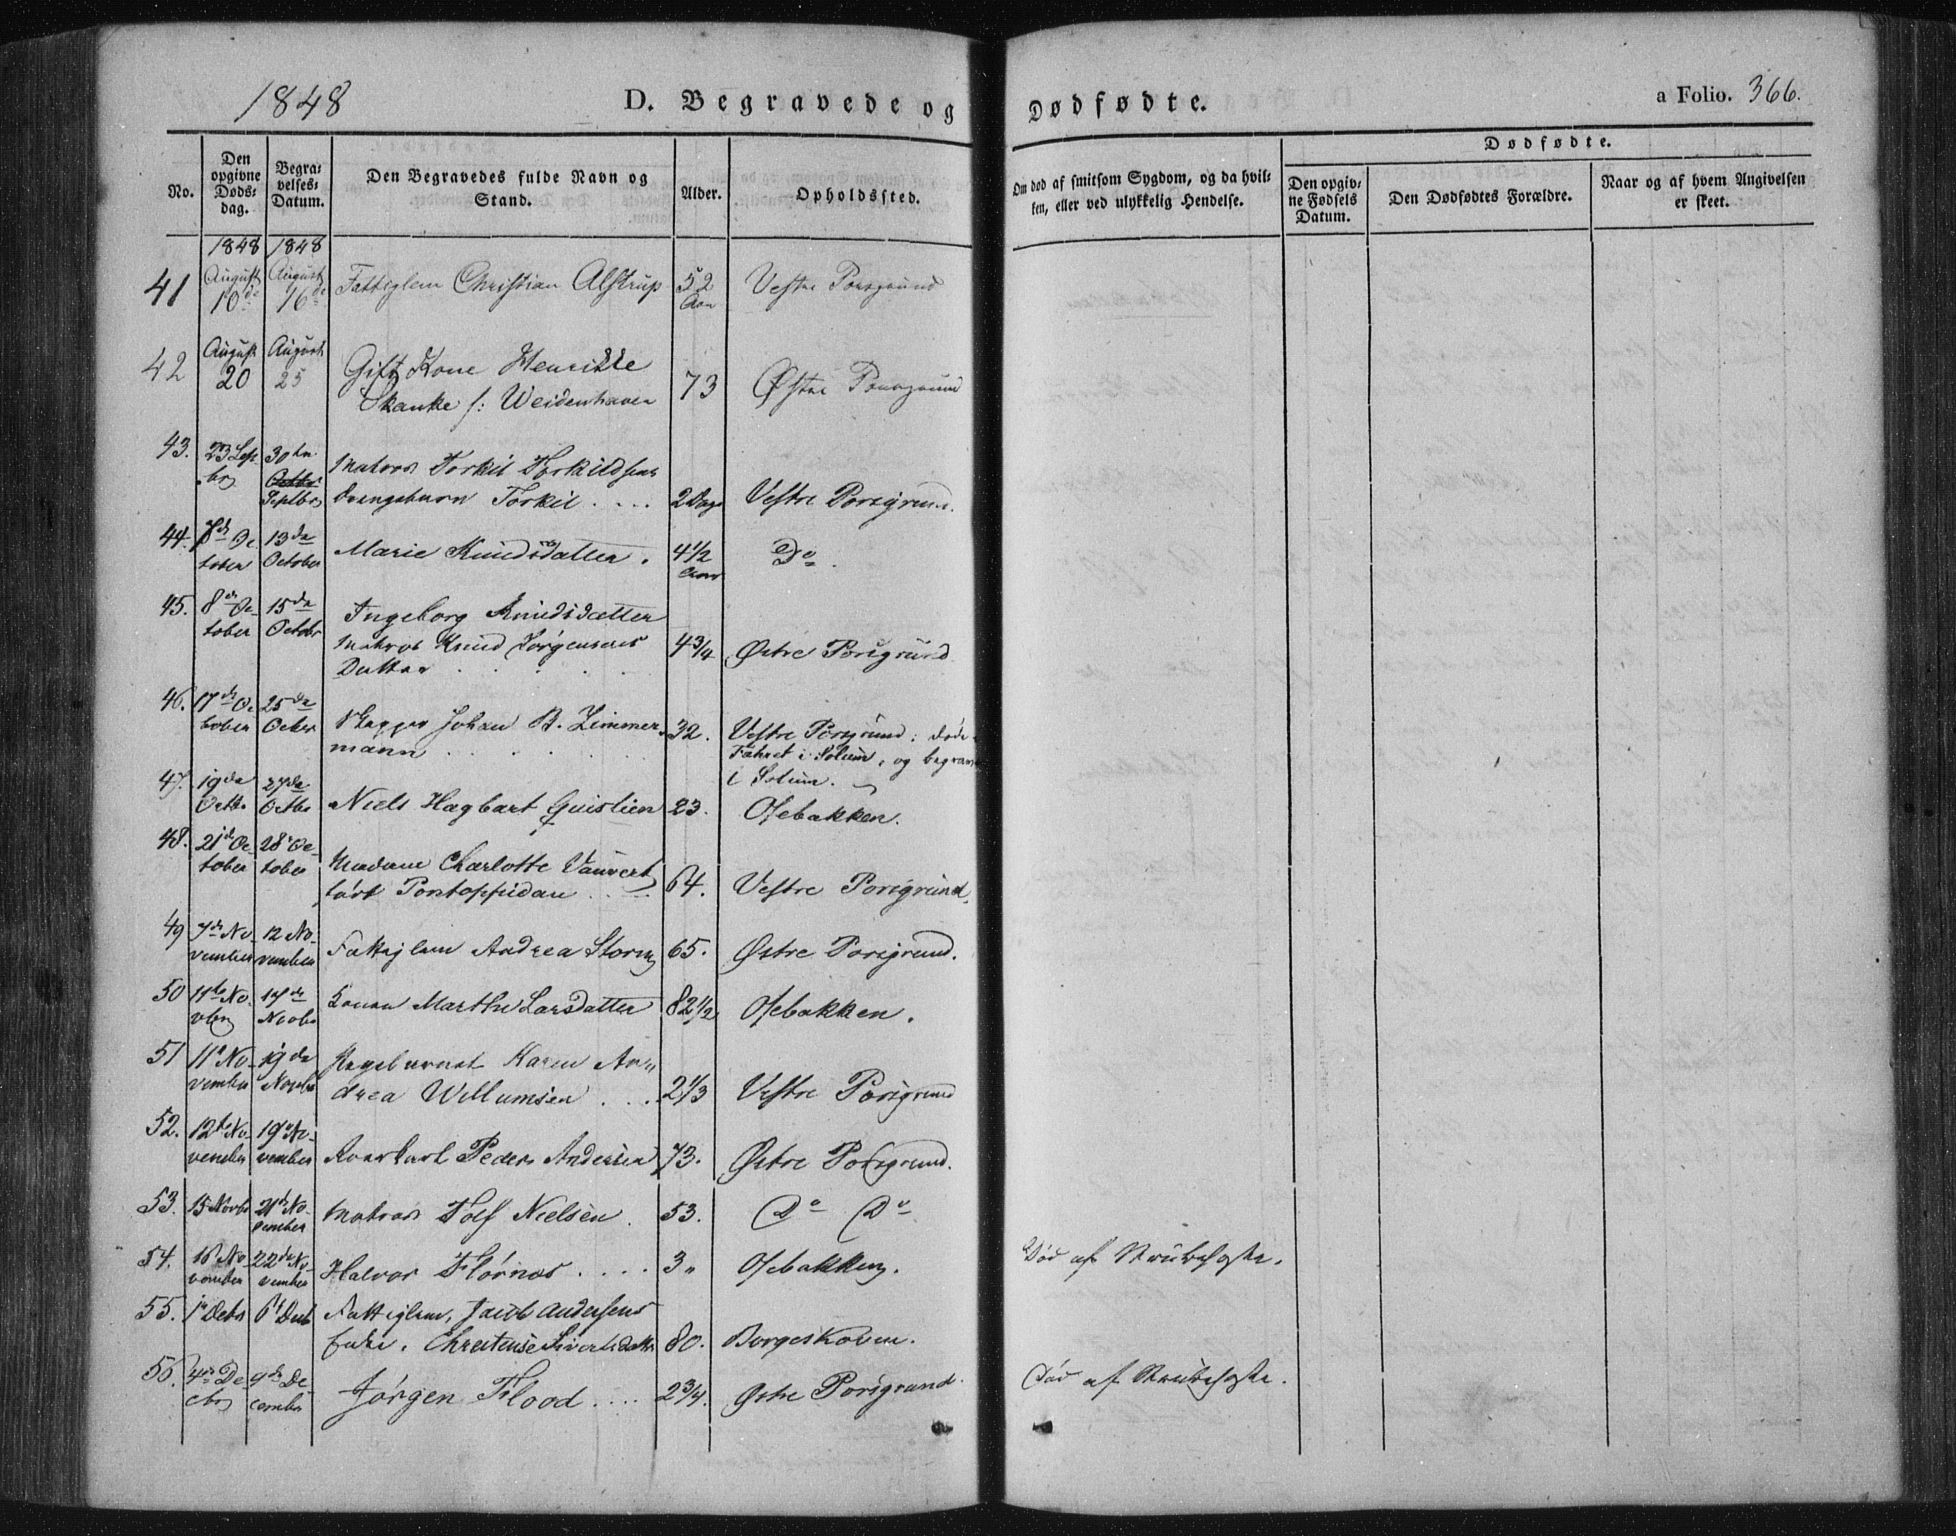 1848
D. Begravede og Dødfødte.
a Folio. 366.
No.
Den opgivne Døds-dag.
Begra-velses-Datum.
Den Begravedes fulde Navn og Stand.
Alder.
Opholdssted.
Om død af smitsom Sygdom, og da hvil-
ken, eller ved ulykkelig Hendelse.
Dødfødte.
Den opgiv-
ne Fødsels
Datum.
Den Dødfødtes Forældre.
Naar og af hvem Angivelsen
er skeet.
1848 1848
41 August 10de August 16de Fattiglem Christian Alstrup 52 Aar Vestre Porsgrund
42 August 20 August 25 Gift Kone Henrikke
Skanke f: Weidenhaven 73 Østre Porsgrund
43. 23 Sept br 30te Septbr Matros Torkil Torkildsens
drengebarn Torkil .... 2 Dage Vestre Porsgrund.
44. 7de October 13de October Marie Knudsdatter. 4 1/2 Aar Do
45. 8de October 15de Octobr Ingeborg Knudsdatter
Matros Knud Jørgensens
Datter 4 3/4 Østre Porsgrund
46. 17de October 25de Octber Skipper Johan B. Zimmer-
mann 32. Vestre Porsgrund; døde
i Solum, og begrav
i Solum.
47. 19de Octb 27de Octbr Niels Hagbart Quislien 23. Osebakken.
48. 21de October 28de October Madame Charlotte Vauvert
født Pontoppidan .... 64. Vestre Porsgrund.
49 7de November 12 November Fattiglem Andrea Storm 65. Østre Porsgrund.
50 11te Novbr 17de Novbr Konen Marthe Larsdatter 82 1/2 Osebakken.
51 11te November 19de Novbr Pigebarnet Karen An-
drea Willumsen ... 2 1/3 Vestre Porsgrund
52. 12te November 19de November Peder Andersen 73. Østre Porsgrund.
53. 15 Novbr 21de November Matros Tolf Nielsen. 53. Do Do
54. 16 November 22de November Halvor Flørnes .... 3 " Osebakken. Død af Strubehoste.
55. 1te Debr 6te Decb Fattiglem, Jacob Andersens
Enke, Christense Sivertsdatter 80. Borgeskoven.
56. 4de Debr 9de December Jørgen Flood .... 2 3/4. Østre Porsgrund. Død af Strubehoste.